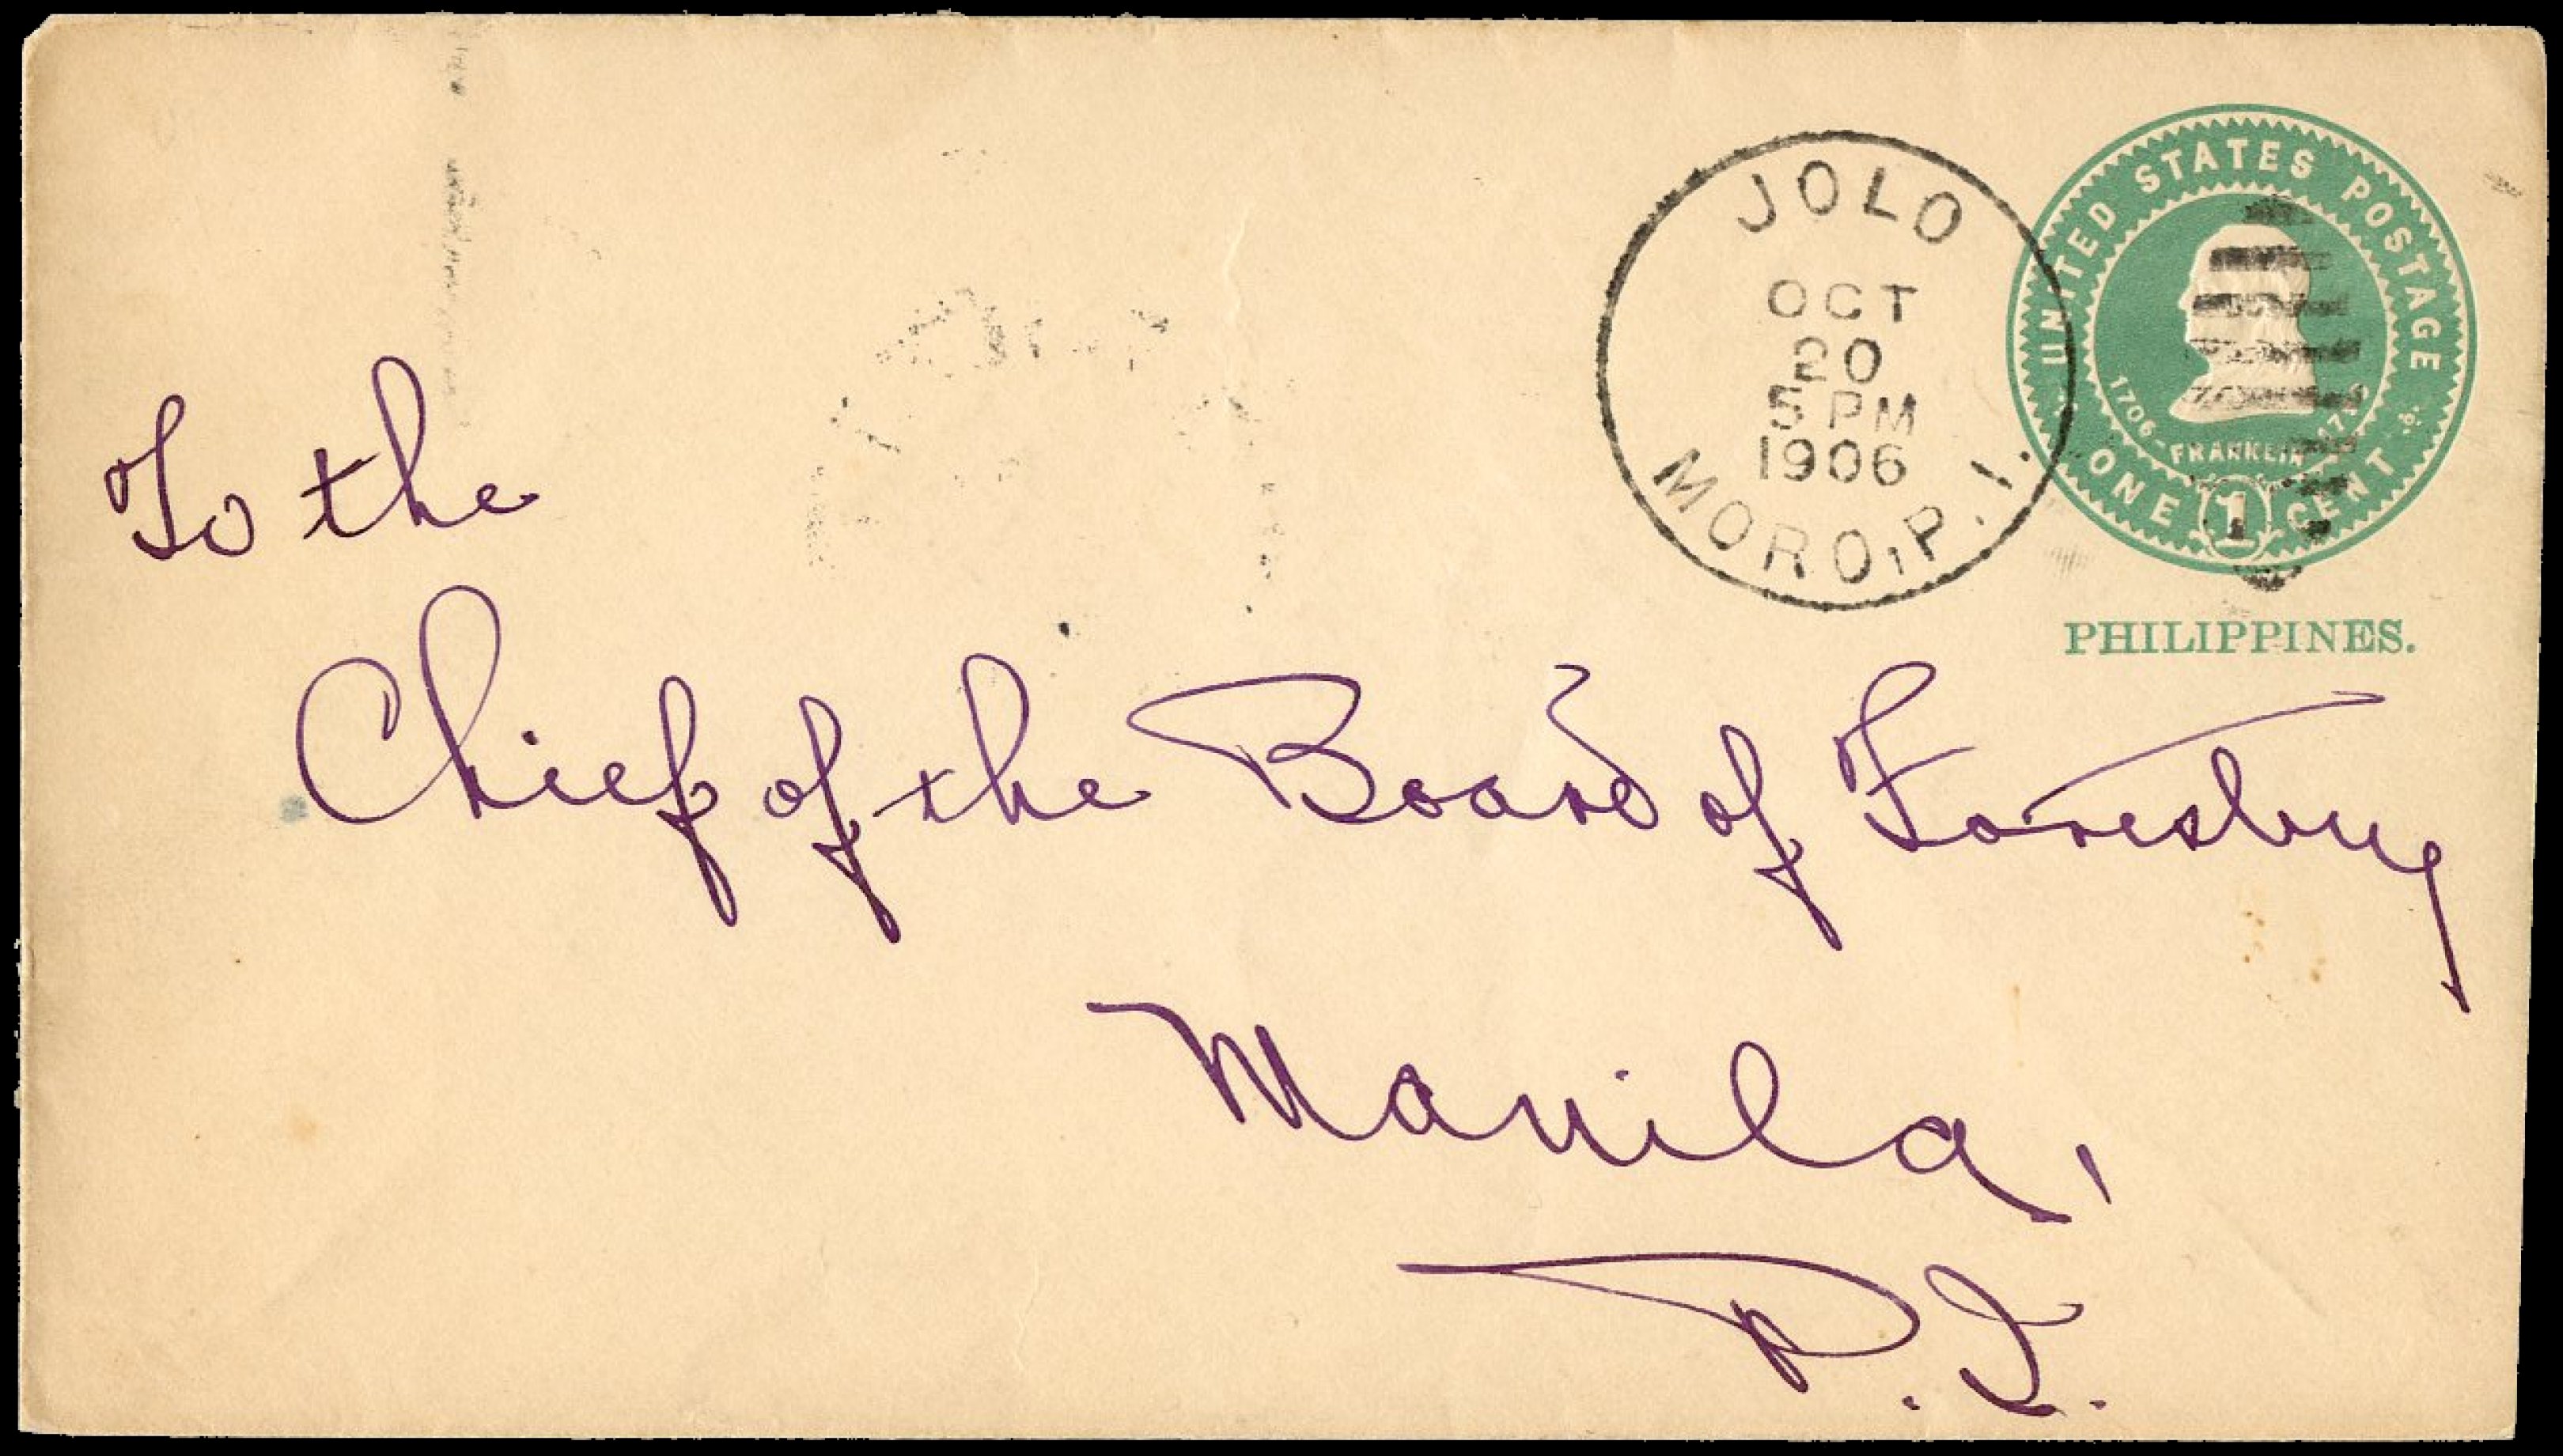 JOLO
OCT
20
5 PM
1906
MORO, P. I.
UNITED STATES POSTAGE
1706-FRANKLIN
ONE 1 CENT
PHILIPPINES.
To the
Chief of the Board of Forestry
Manila,
P. I.